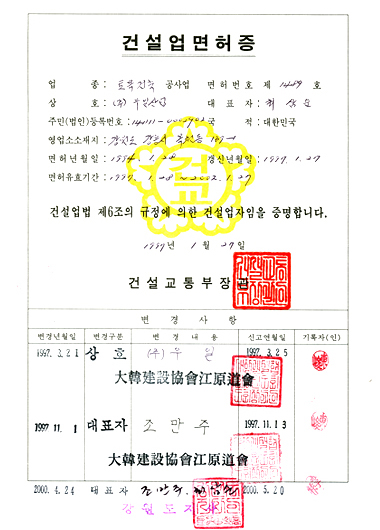 건설업면허증
업 종: 토목건축 공사업 면허번호 제 1489 호
상 호: (주) 대표자: 최
주민(법인)등록번호: 국 적: 대한민국
영업소소재지: 강원도 강릉시
면허년월일: 1994. 1. 28 갱신년월일: 1997. 1. 27
면허유효기간: 1997. 1. 28 ~ 2002. 1. 27
건설업법 제6조의 규정에 의한 건설업자임을 증명합니다.
1997년 1월 27일
건설교통부장관
변 경 사 항
변경년월일 변경구분 변 경 내 용 신고연월일 기록자(인)
1997. 3. 21 상 호 (주) 우 일 1997. 3. 25
大韓建設協會江原道會
1997. 11. 1 대표자 조 만 주 1997. 11. 13
大韓建設協會江原道會
2000. 4. 24 대표자 조만주, 2000. 5. 20
강원도지